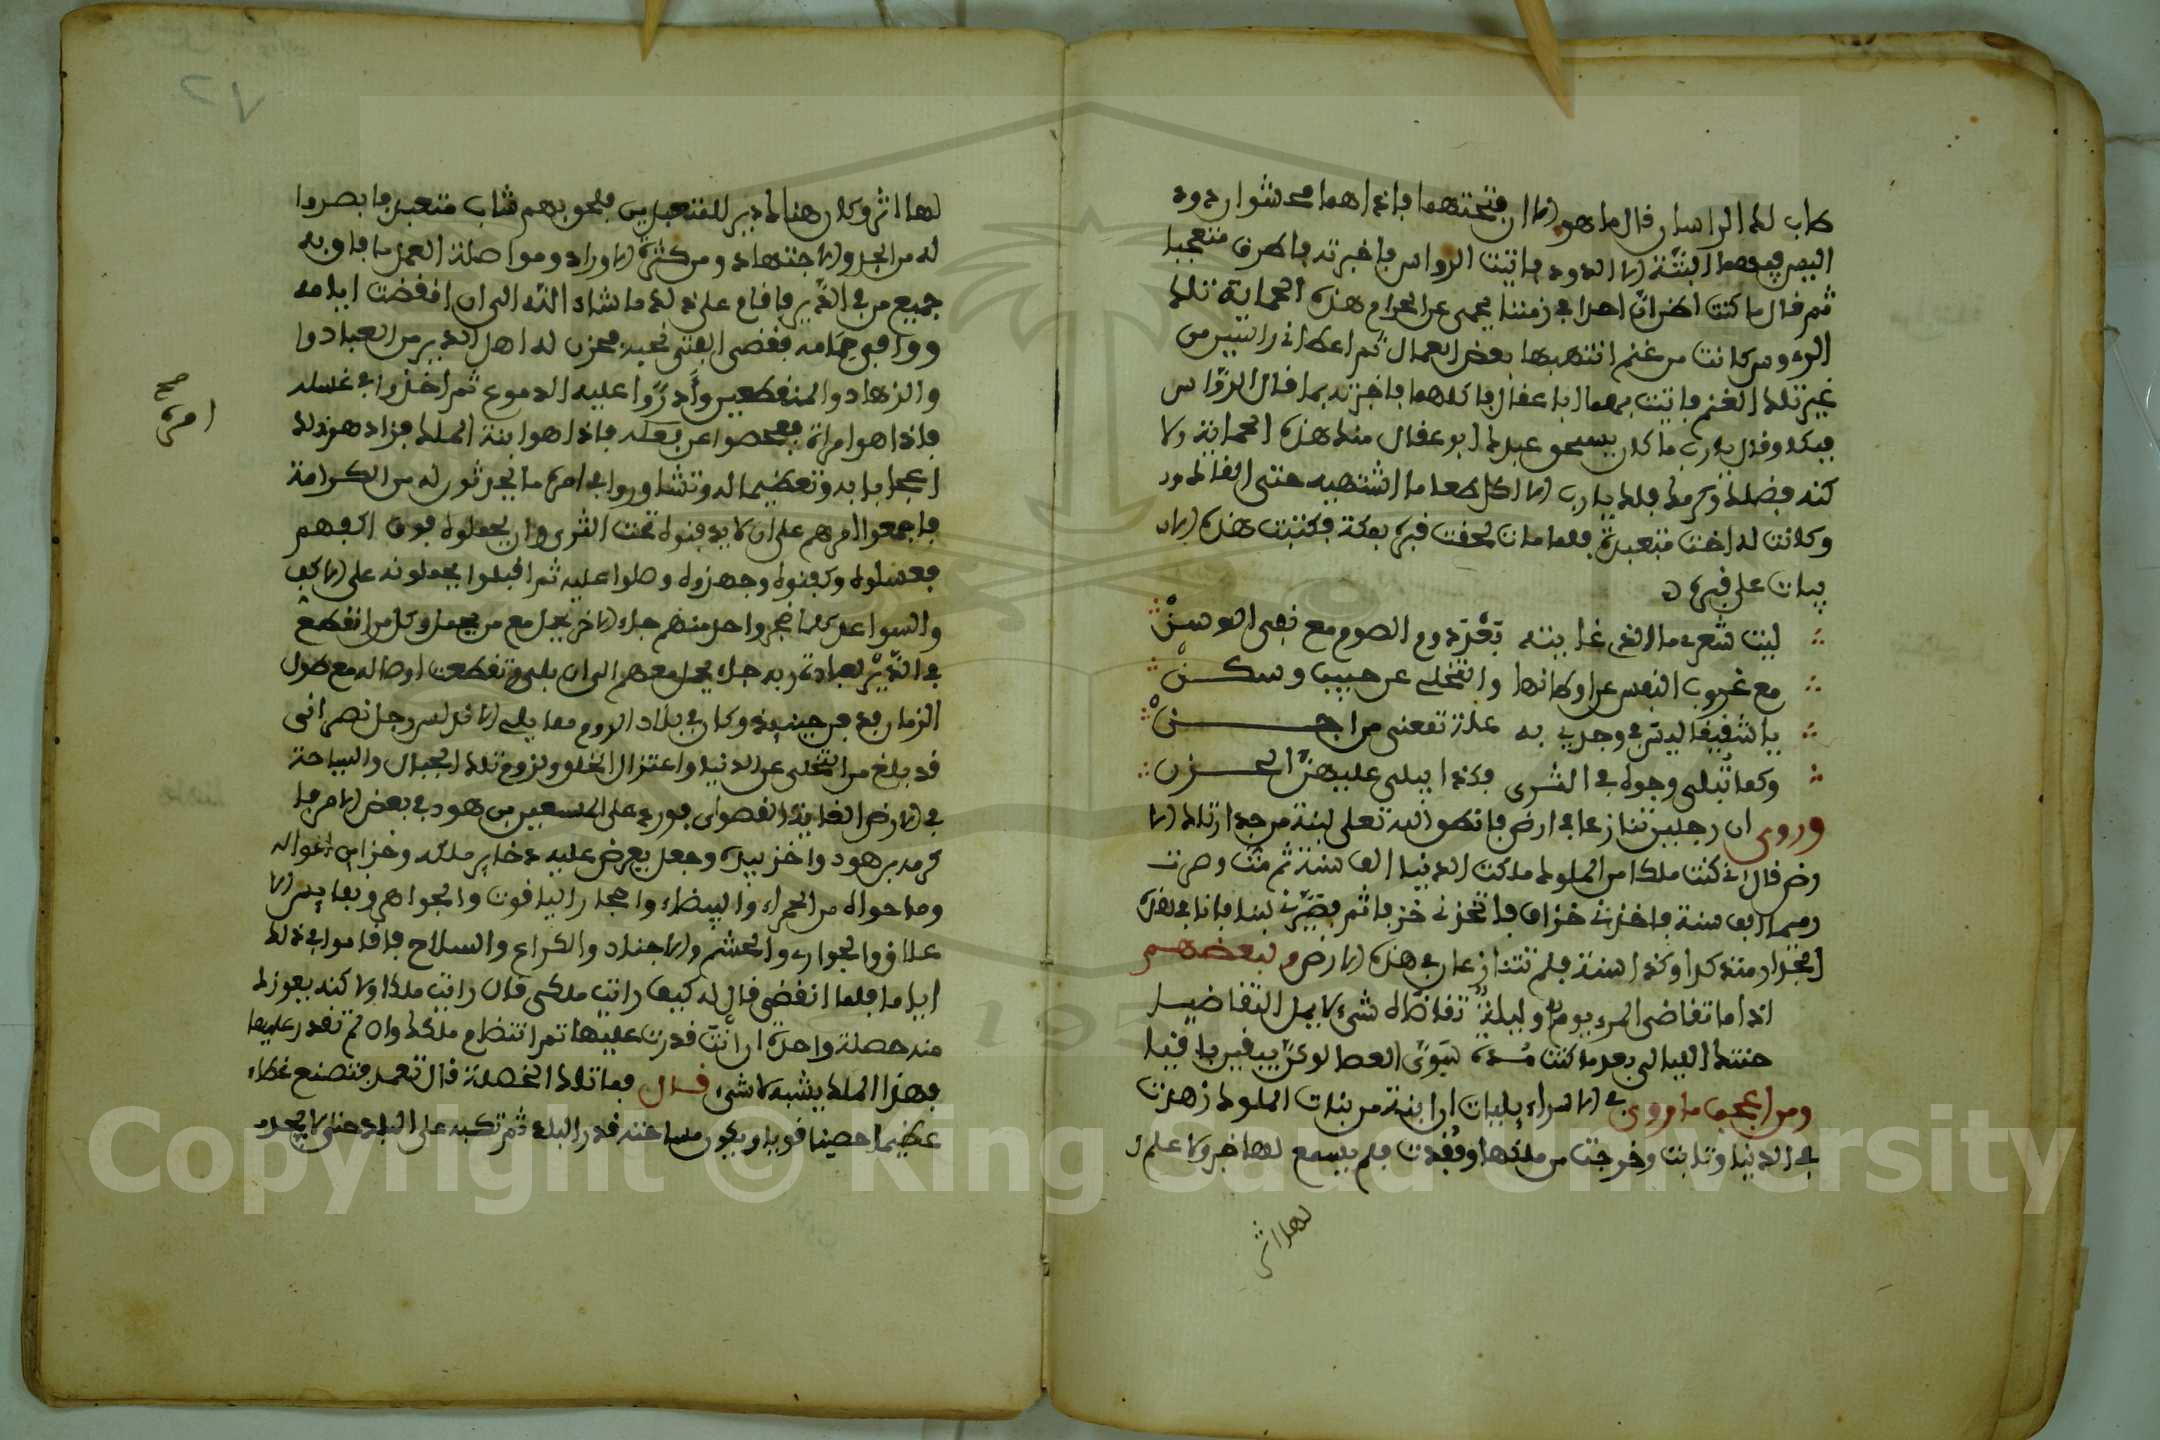 طاب لك الراسان قال ما هو الا ان فتحتهما فاذاهما محشوان دود
ليس فيهما البتة الا الدود فاتيت الرواس فاخبرته فاطرق متعجبا
ثم قال ما كنت اظن ان احدا في زمننا يحمى عن الحرام هذه الحماية تلك
الروس كانت من غنم انتهبها بعض العمال ثم اعطاني راسين من
غير تلك الغنم فاتيت بهما ابا عقال فاكلهما فاخبرته بما قال الرواس
فبكى وقال يا رب ما كان يستحق عبدك ابو عقال منك هذه الحماية ولا
كنه فضلك وكرمك فلك يا رب الا اكل طعاما اشتهيه حتى القاك
وكانت له اخت متعبدة فلما مات لحقت قبره بمكة فكتبت هذه الا
بيات على قبره
ليت شعري ما الذي عاينته بعد دوم الصوم مع نفي الوسن
مع عزوب النفس عن اوطانها والتخلي عن حبيب وسكن
يا شفيقا ليس في وجدي به علة تمنعني من اجن
وكما تبلى وجوه في الثرى فكذا يبلى عليهن الحزن
وروى ان رجلين تنازعا في ارض فانطق الله تعلى لبنة من جدار تلك الا
رض قال اني كنت ملكا من الملوك ملكت الدنيا الف سنة ثم مت وصرت
رميما الف سنة فاخذني خزاف فاتخذني خزفا ثم فصيرني لبنا فانا في هذا
الجدار منذ كذا وكذا سنة فلم تتنازعان في هذه الارض ولبعضهم
اذا ما تقاضى المرء يوم وليلة تقاضاه شيء لا يمل التقاضيا
حنتك الليالي بعد ما كنت مدة سوي العصا لو كن يبقين باقيا
ومن اعجب ما روي في الاسراءيليات ان ابنة من بنات الملوك زهدت
في الدنيا وتابت وخرجت من ملكها وفقدت فلم يسمع لها خبر ولا علم
لها اثر
لها اثر وكان هنالك دير للمتعبدين فلحق بهم شاب متعبد فابصروا
له من الجد والاجتهاد ومن كثرة الاوراد ومواصلة العمل ما فاق به
جميع من في الدير فاقام على ذلك ما شاء الله الى ان انقضت ايامه
ووافى حمامه فقضى الفتى نحبه فحزن له اهل الدير من العباد وا
والزهاد والمنقطعين وأدروا عليه الدموع ثم اخذوا في غسله
فاذا هو امراة ففحصوا عن فاذا هو ابنة الملك فزادهم ذلك
اعجابا به وتعظيما له وتشاوروا في امره ما يحدثون له من الكرامة
امره صح
فاجمعوا امرهم على ان لا يدفنوه تحت الثرى وان يحملوه فوق اكفهم
فغسلوه وكفنوه وجهزوه وصلوا عليه ثم اقبلوا يحملونه على الاكف
والسواعد كلما ضجر واحد منهم جاء الاخر يحمل مع من يحمل وكل من انقطع
في الدير لعبادة ربه جاء يحمل معهم الى ان بلي وتقطعت اوصاله مع طول
الزمان فدفن حينيذ وكان في بلاد الروم مما يلي الاندلس رجل نصراني
قد بلغ من التخلي عن الدنيا واعتزال الخلق ولزوم تلك الجبال والسياحة
في الارض الغاية القصوى فورد على المستعين بن هود في بعض الامر فا
كرمه بن هود واخذ بيده وجعل يعرض عليه ذخاير ملكه وخزاين امواله
وما حواه من الحمراء والبيضاء واحجار الياقوت والجواهر ونفايس الا
علاق والجواري والحشم والاجناد والكراع والسلاح فاقاموا في ذلك
اياما فلما انقضى قال له كيف رايت ملكي قال رايت ملكا ولاكنه يعوزك
منه خصلة واحدة ان انت قدرت عليها تم انتظام ملكك وان لم تقدر عليها
فهذا الملك يشبه لا شيء قال وما تلك الخصلة قال تعمد فتصنع غطاء
عظيما حصينا قويا ويكون مساحته قدر البلد ثم تكبه على البلد حتى لا يجد